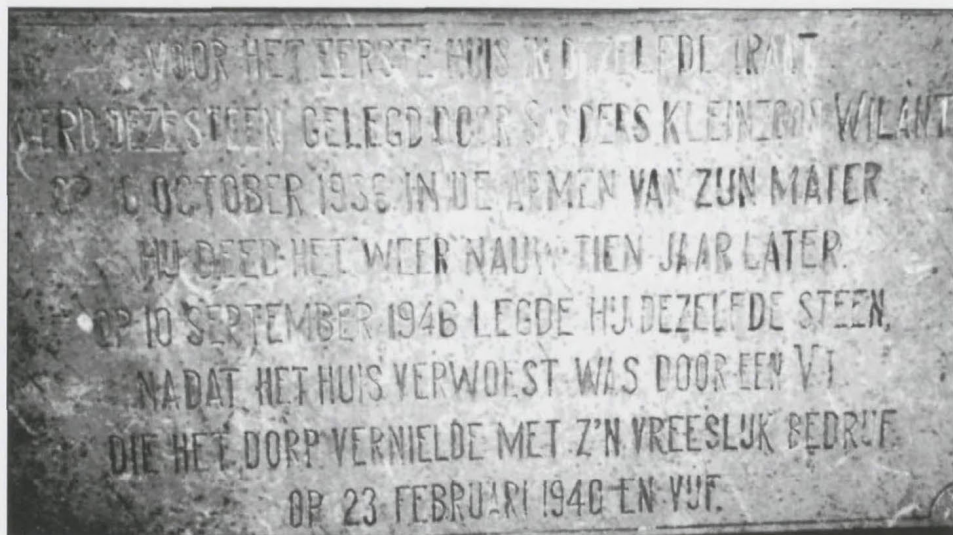 VOOR HET EERSTE HUIS IN DEZELFDE TRANT
WERD DEZE STEEN GELEGD DOOR SANDERS KLEINZOON WILANT
OP 6 OCTOBER 1936 IN DE ARMEN VAN ZIJN MATER.
HIJ DEED HET WEER NAUW TIEN JAAR LATER.
OP 10 SEPTEMBER 1946 LEGDE HIJ DEZELFDE STEEN,
NADAT HET HUIS VERWOEST WAS DOOR EEN V.1.
DIE HET DORP VERNIELDE MET Z'N VREESLIJK BEDRIJF.
OP 23 FEBRUARI 1940 EN VIJF.